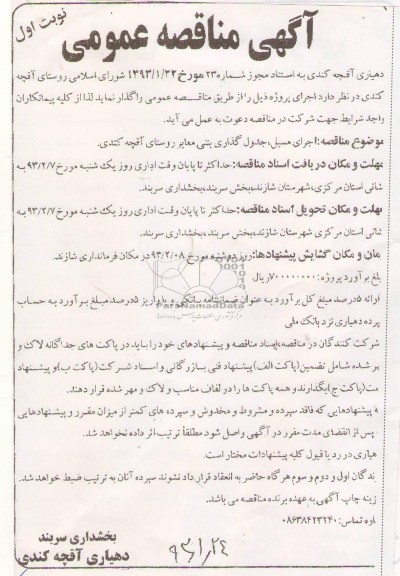 نوبت اول
آگهی مناقصه عمومی
دهیاری آقچه کندی به استناد مجوز شماره ۲۳ مورخ ۱۳۹۳/۱/۲۲ شورای اسلامی روستای آقچه
کندی در نظر دارد اجرای پروژه ذیل را از طریق مناقصه عمومی واگذار نماید لذا از کلیه پیمانکاران
واجد شرایط جهت شرکت در مناقصه دعوت به عمل می آید.
موضوع مناقصه: اجرای مسیل، جدول گذاری بتنی معابر روستای آقچه کندی.
مهلت و مکان دریافت اسناد مناقصه: حداکثر تا پایان وقت اداری روز یک شنبه مورخ ۹۳/۲/۷ به
شانی استان مرکزی، شهرستان شازند، بخش سربند، بخشداری سربند.
مهلت و مکان تحویل اسناد مناقصه: حداکثر تا پایان وقت اداری روز یک شنبه مورخ ۹۳/۲/۷ به
شانی استان مرکزی شهرستان شازند، بخش سربند، بخشداری سربند.
مان و مکان گشایش پیشنهادها: روز دوشنبه مورخ ۹۳/۲/۰۸ در مکان فرمانداری شازند.
بلغ برآورد پروژه: ۷۰۰۰۰۰۰۰۰ ریال
ارائه ۵درصد مبلغ کل برآورد به عنوان ضمانتنامه بانکی و یا واریز ۵درصد مبلغ برآورد به حساب
پرده دهیاری نزد بانک ملی
شرکت کنندگان در مناقصه، اسناد مناقصه و پیشنهادهای خود را باید در پاکت های جداگانه لاک و
بر شده شامل تضمین (پاکت الف) پیشنهاد فنی بازرگانی و اسناد شرکت (پاکت ب) و پیشنهاد
مت (پاکت ج) بگذارند و همه پاکت ها را در لفاف مناسب و لاک و مهر شده قرار دهند.
ه پیشنهادهایی که فاقد سپرده و مشروط و مخدوش و سپرده های کمتر از میزان مقرر و پیشنهادهایی
پس از انقضای مدت مقرر در آگهی واصل شود مطلقاً ترتیب اثر داده نخواهد شد.
هیاری در رد یا قبول کلیه پیشنهادات مختار است.
ندگان اول و دوم و سوم هرگاه حاضر به انعقاد قرارداد نشوند سپرده آنان به ترتیب ضبط خواهد شد.
زینه چاپ آگهی به عهده برنده مناقصه می باشد.
اره تماس: ۰۸۶۳۸۴۲۳۲۴۰
بخشداری سربند
دهیاری آقچه کندی
۹۳/۱/۲۴